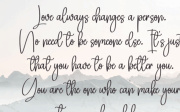 Love always changes a person.
No need to be someone else. It's just
that you have to be a better you.
You are the one who can make your